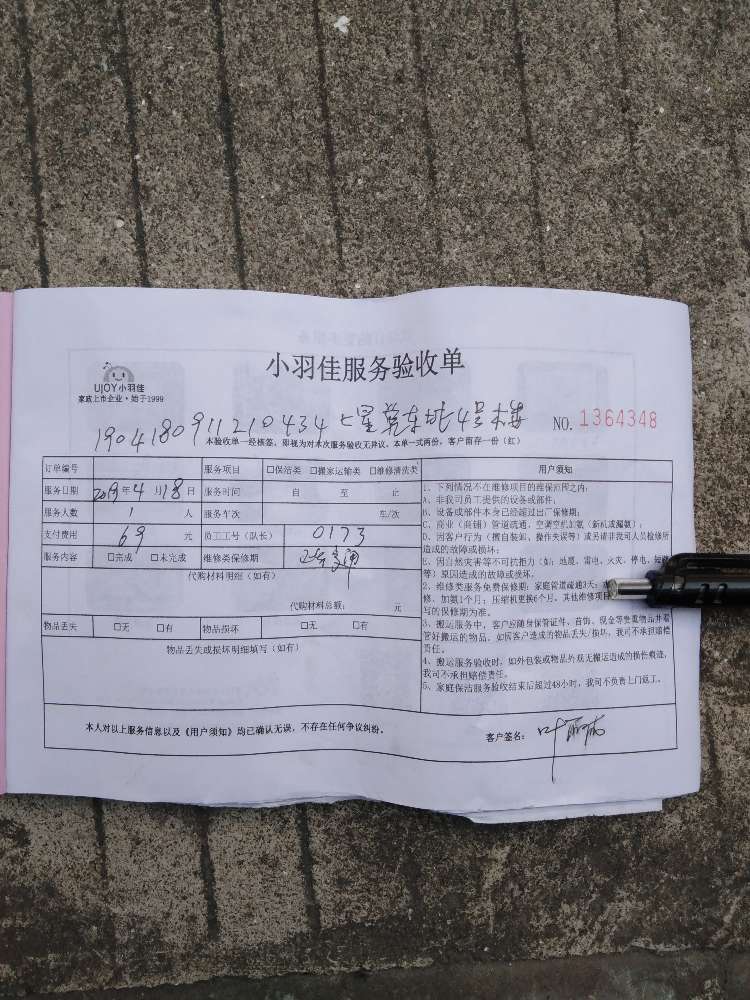 小羽佳服务验收单
UJOY小羽佳
家政上市企业·始于1999
1904180911210434
NO. 1364348
本验收单一经核签，即视为对本次服务验收无异议。本单一式两份，客户留存一份（红）
订单编号 服务项目 □保洁类 □搬家运输类 □维修清洗类
服务日期 2019年4月18日 服务时间 自 至 止
服务人数 1 人 服务车次 车/次
支付费用 69 元 员工工号（队长） 0173
服务内容 □完成 □未完成 维修类保修期
代购材料明细（如有）
代购材料总额： 元
物品丢失 □无 □有 物品损坏 □无 □有
物品丢失或损坏明细填写（如有）
用户须知
1、下列情况不在维修项目的维保范围之内：
A、非我司员工提供的设备或部件；
B、设备或部件本身已经超过出厂保修期；
C、商业（商铺）管道疏通，空调空机加氨（新机或漏氨）；
D、因客户行为（擅自装卸、操作失误等）或另请非我司人员检修所
造成的故障或损坏；
E、因自然灾害等不可抗拒力（如：地震、雷电、火灾、停电、短
等）原因造成的故障或损坏。
2、维修类服务免费保修期：家庭管道疏通3天；
修、加氨1个月；压缩机更换6个月。其他维修项目
写的保修期为准。
3、搬运服务中，客户应随身保管证件、首饰、现金等贵重物品并看
管好搬运的物品。如因客户造成的物品丢失/损坏，我司不承担赔偿
责任。
4、搬运服务验收时，如外包装或物件外观无搬运造成的损长痕迹，
我司不承担赔偿责任。
5、家庭保洁服务验收结束后超过48小时，我司不负责上门返工。
本人对以上服务信息以及《用户须知》均已确认无误，不存在任何争议纠纷。
客户签名：